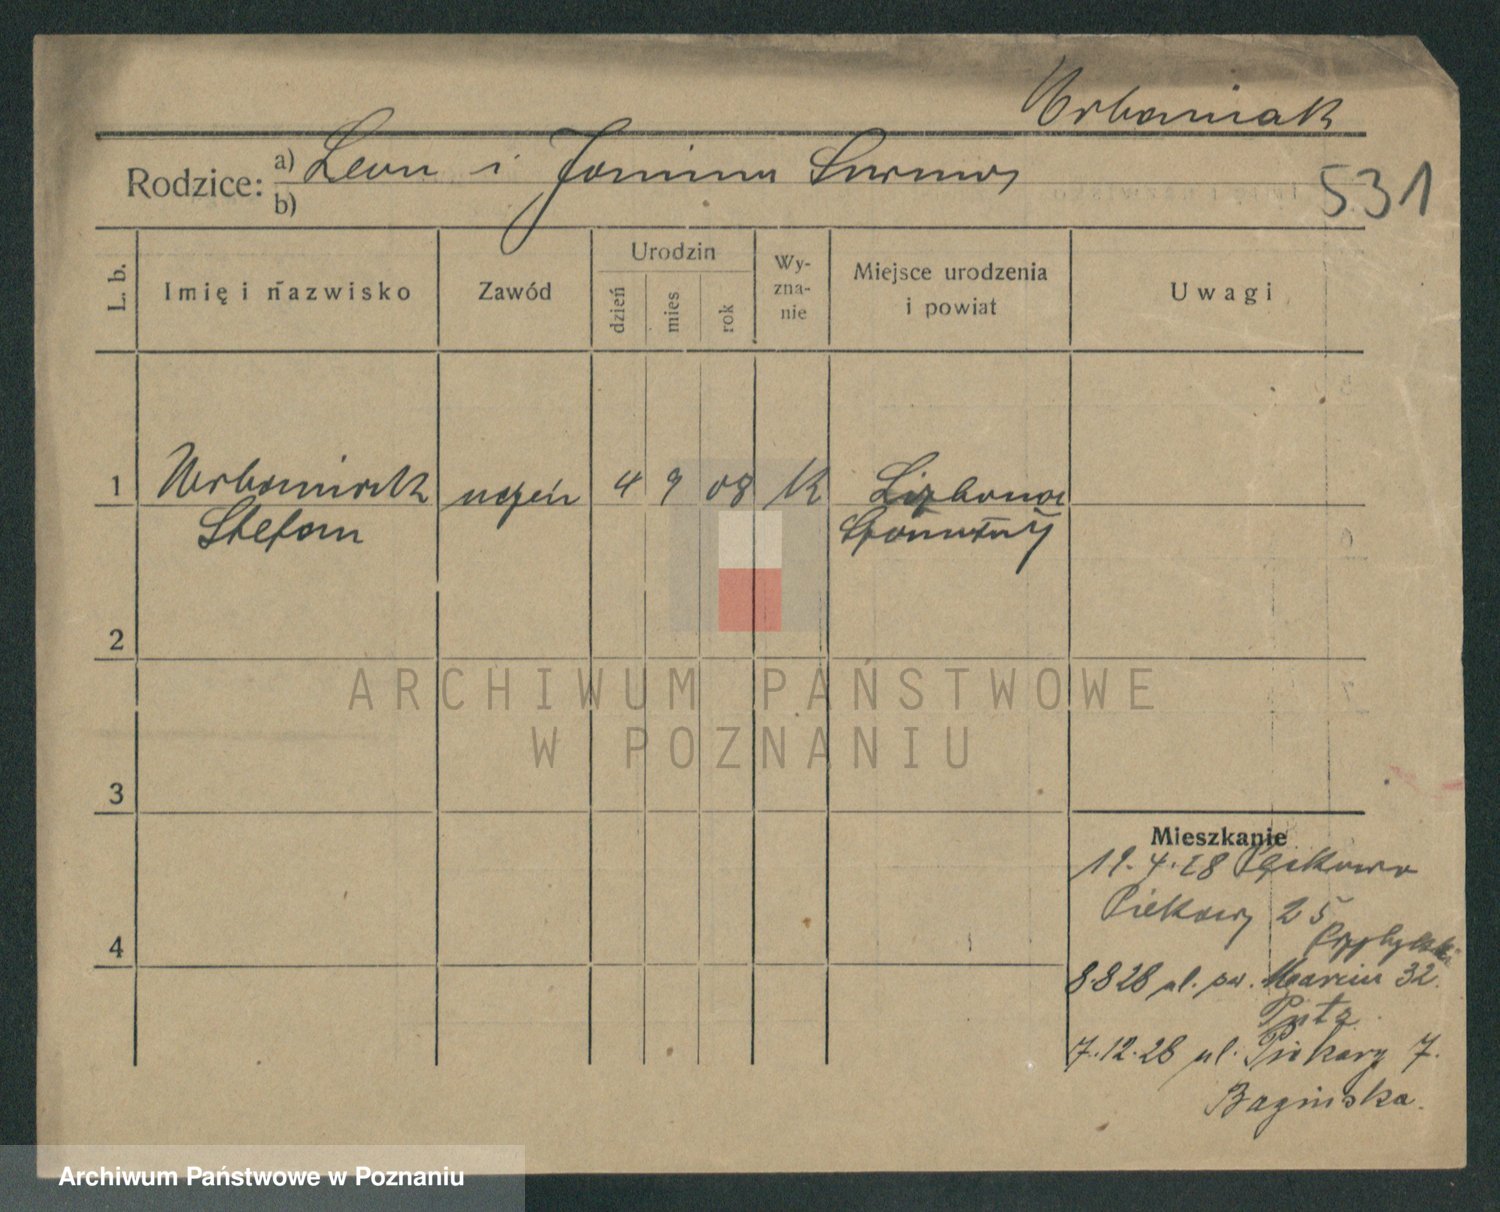 Urbaniak
Rodzice: a) Leon i Janina Surma
b)
531
L. b.
Imię i nazwisko
Zawód
Urodzin
dzień
mies
rok
Wy-
zna-
nie
Miejsce urodzenia
i powiat
Uwagi
1 Urbaniak uczeń 4 9 08 K
Stefan
2
3
4
Mieszkanie
Piekary 25
8.8 28 ul. św. Marcin 32.
7.12.28 ul. Piekary 7.
Bagińska.
ARCHIWUM PAŃSTWOWE
W POZNANIU
Archiwum Państwowe w Poznaniu